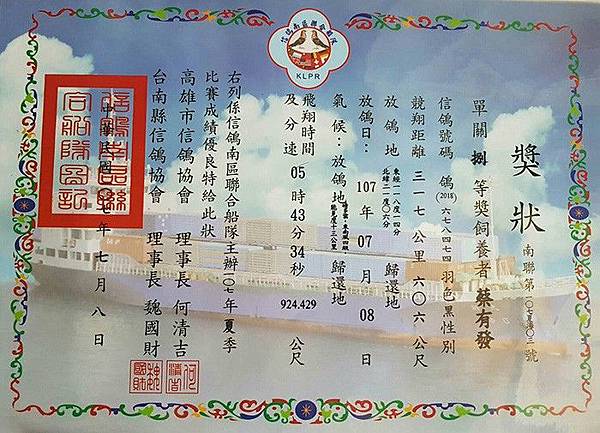 KLPR
獎狀
南聯第
單關 捌 等獎飼養者 蔡有發
信鴿號碼 鴿(2018) 六七八四七四 羽色黑 性別
競翔距離 三一七公里六〇六公尺
放鴿地 東經一一八度一四分 北緯二一度〇六分 歸還地
放鴿日：107年07月08日
氣候：放鴿地 歸還地
飛翔時間 05時43分34秒
及分速 924.429 公尺
右列係信鴿南區聯合船隊主辦一〇七年夏季
比賽成績優良特給此狀
高雄市信鴿協會 理事長 何清吉
台南縣信鴿協會 理事長 魏國財
中華民國一〇七年七月八日